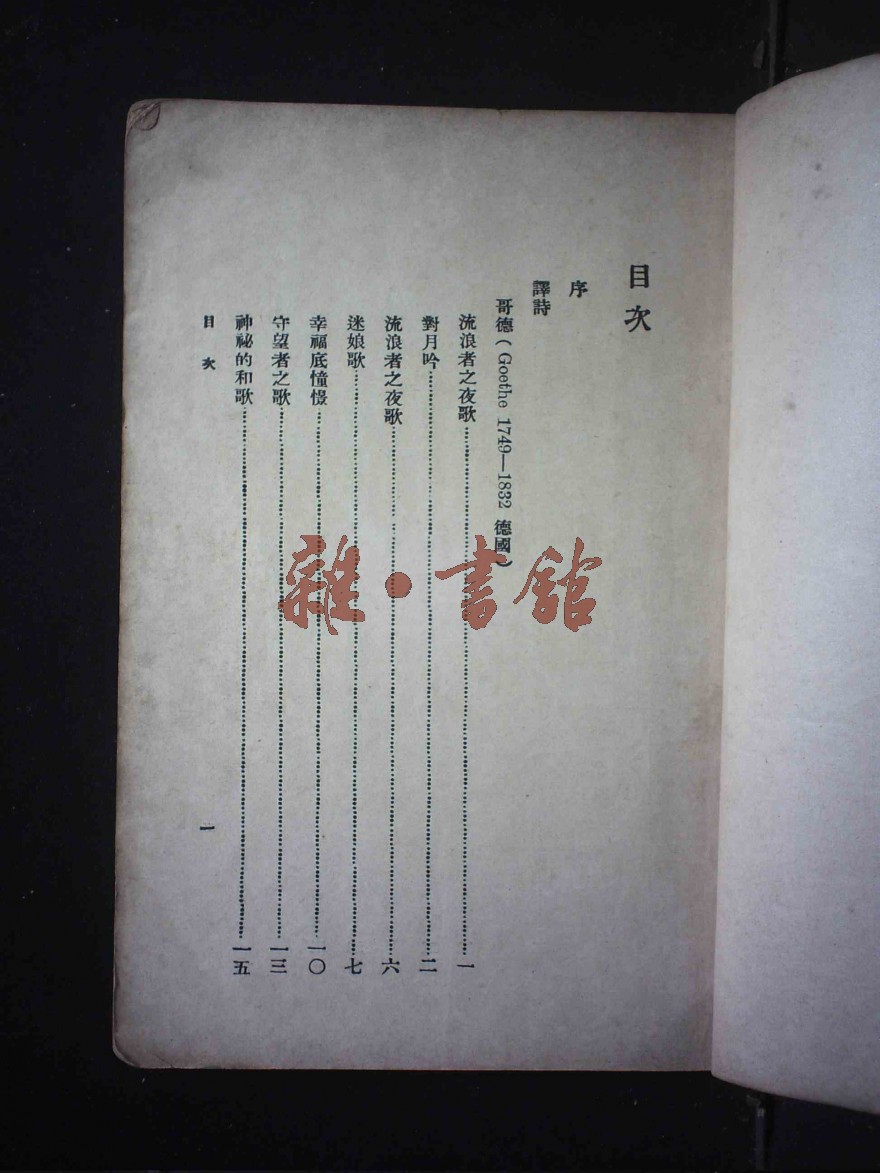 目次
序
譯詩
哥德(Goethe 1749—1832 德國)
流浪者之夜歌……一
對月吟……二
流浪者之夜歌……六
迷娘歌……七
幸福底憧憬……一〇
守望者之歌……一三
神祕的和歌……一五
目次 一
雜·書館